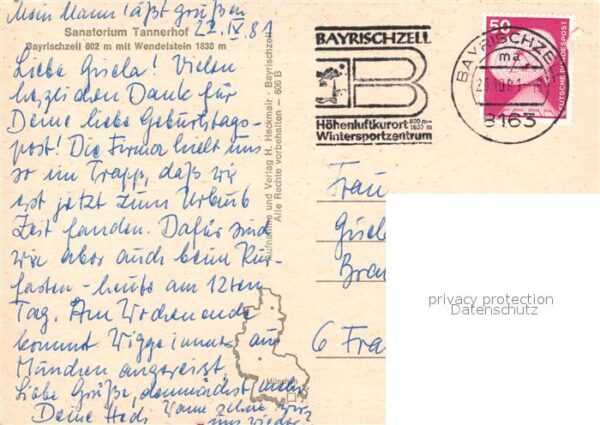 Mein Mann läßt grüßen
22. IV. 81
Sanatorium Tannerhof
Bayrischzell 802 m mit Wendelstein 1838 m
Liebe Gisela! Vielen
herzlichen Dank für
Deine liebe Geburtstags-
post! Die Firma hielt uns
so im Trapp, daß wir
erst jetzt zum Urlaub
Zeit fanden. Dafür sind
wir aber auch beim Kur-
fasten - heute am 12ten
Tag. Am Wochenende
kommt Wigge immer aus
München angereist.
Liebe Grüße, demnächst mehr
Deine Hedi Wann sehen wir
uns wieder
Aufnahme und Verlag H. Heckmair - Bayrischzell
Alle Rechte vorbehalten — 606 B
BAYRISCHZELL
B
Höhenluftkurort 800 m-
1837 m
Wintersportzentrum
BAYRISCHZELL
ma
8163
50
DEUTSCHE BUNDESPOST
Frau
Gisel
Brau
6 Fra
privacy protection
Datenschutz